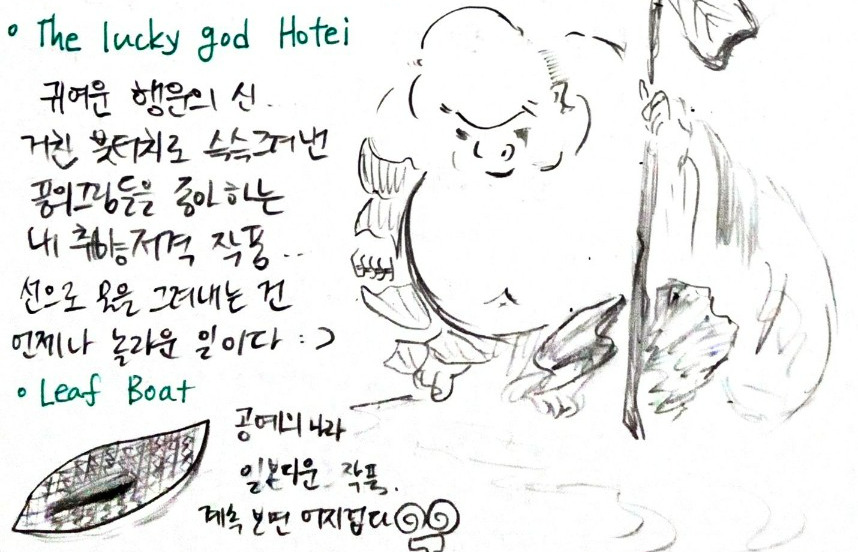 The lucky god Hotei
귀여운 행운의 신...
거친 붓터치로 슥슥그려낸
풍의그림들을 좋아하는
내 취향저격 작품...
선으로 옷을 그려내는 건
언제나 놀라운 일이다 :)
Leaf Boat
공예의 나라
일본다운 작품.
계속 보면 어지럽다